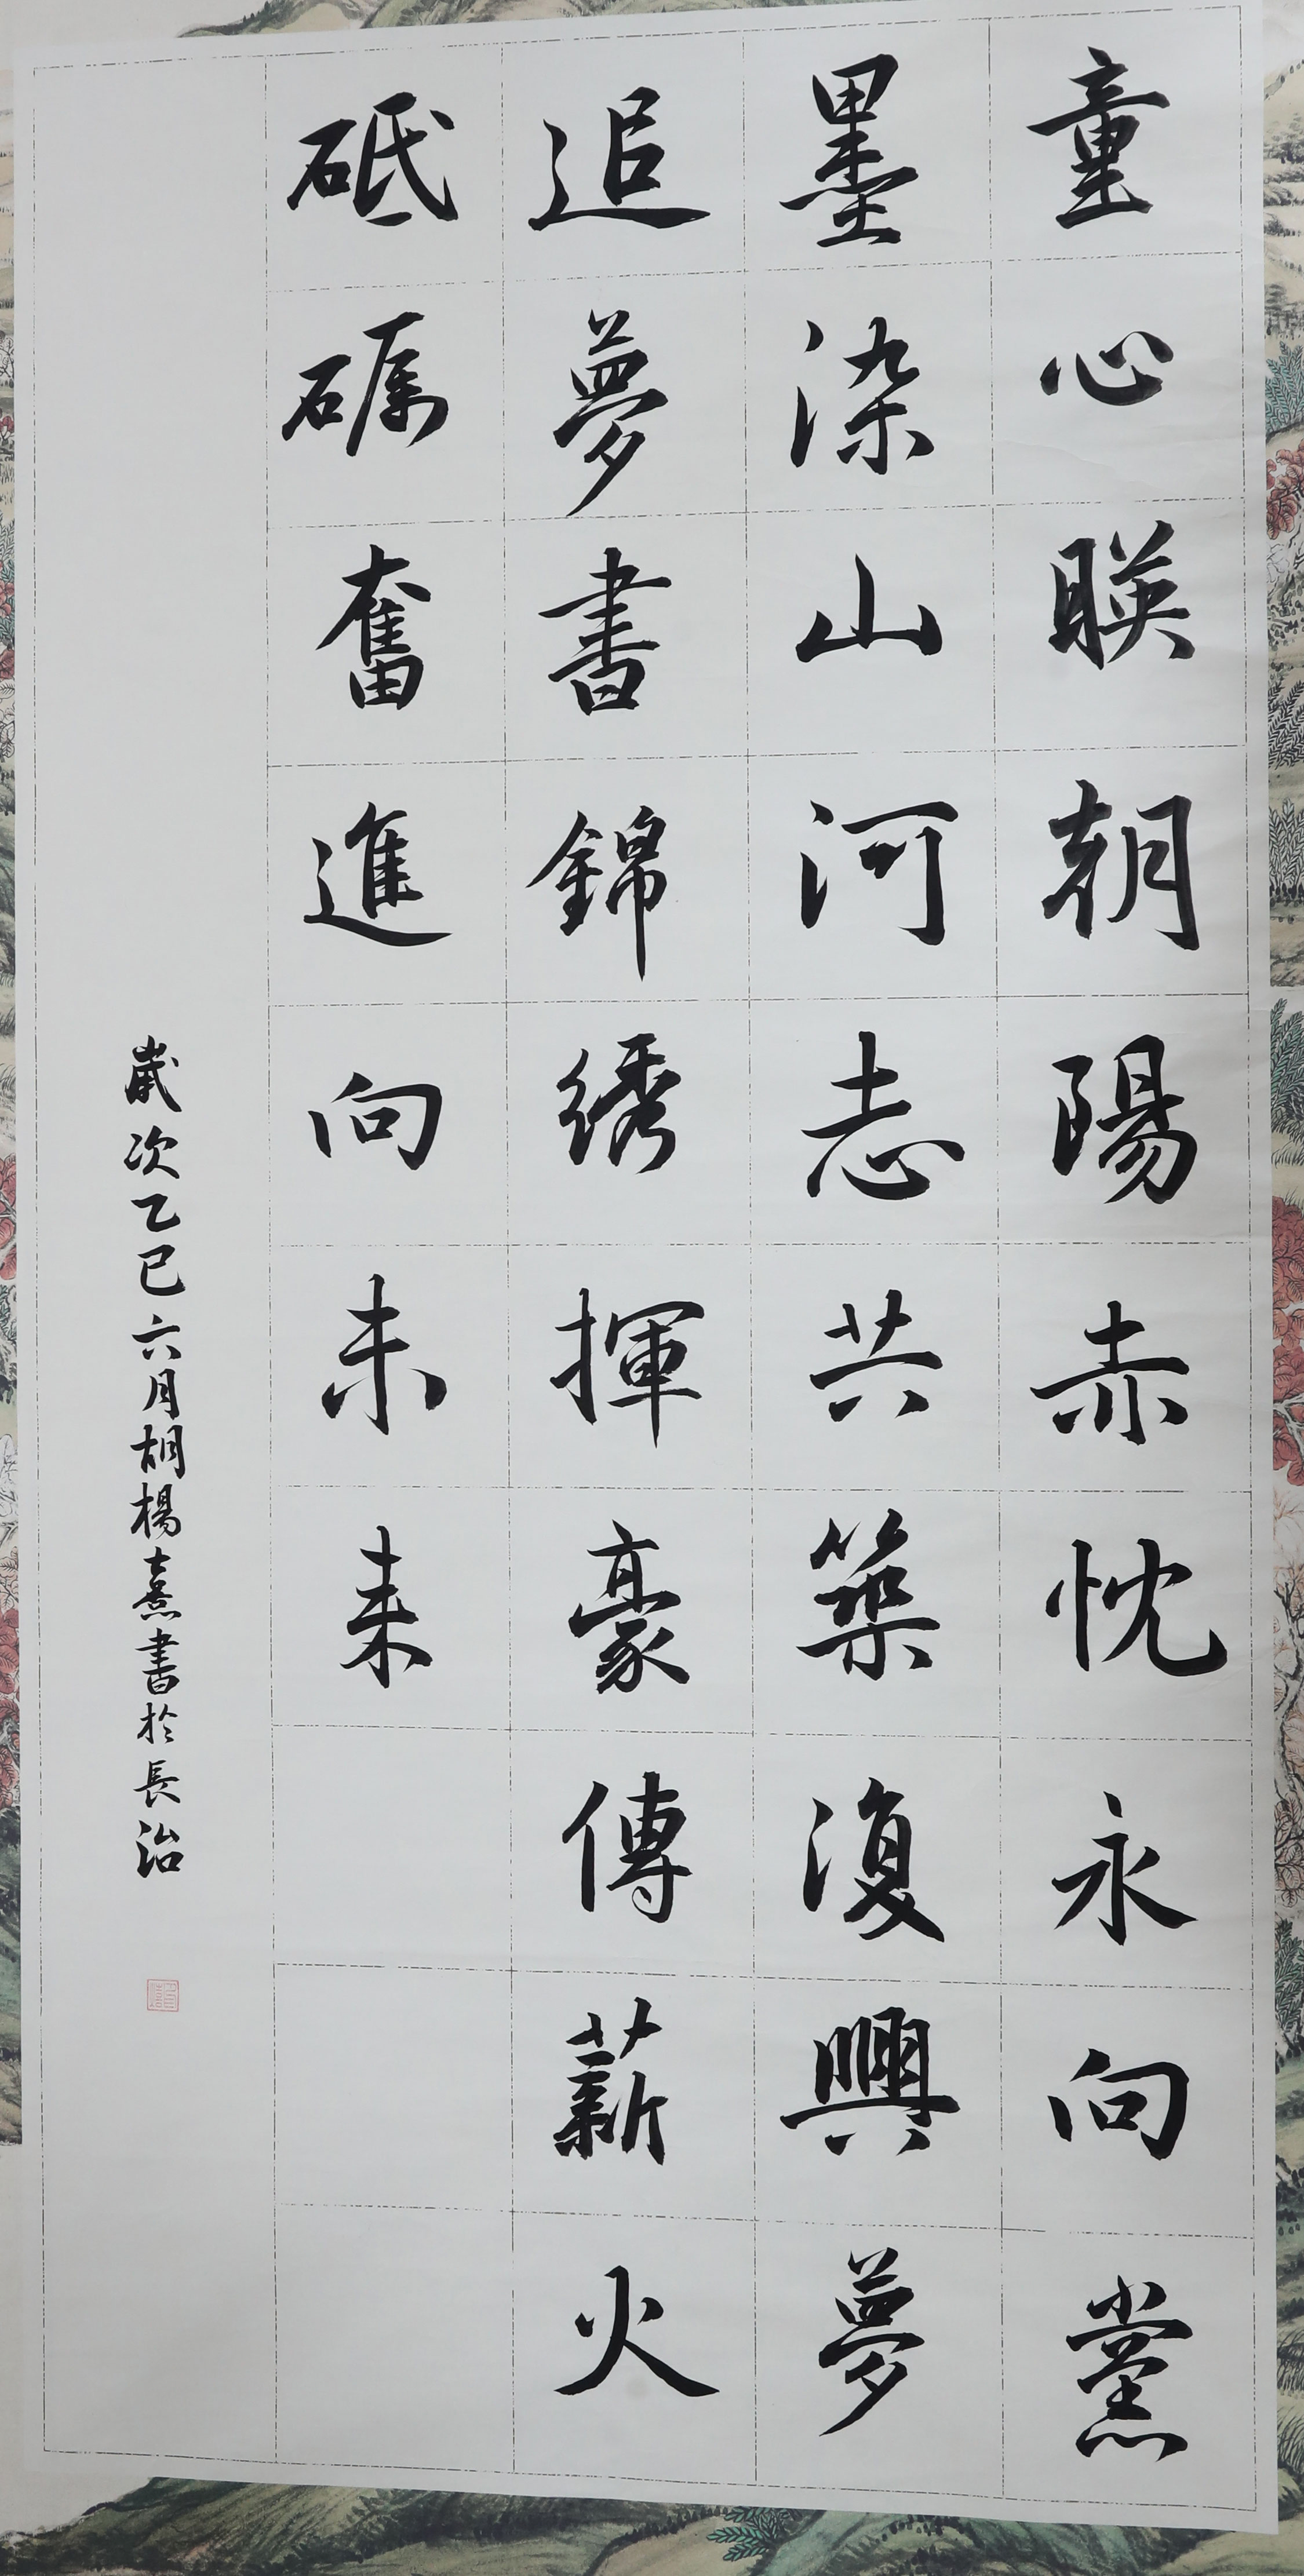 童心暎朝陽赤忱永向黨
墨染山河志共築復興夢
追夢書錦绣揮豪傳薪火
砥礪奮進向未来
歲次乙巳六月胡楊熹書於長治